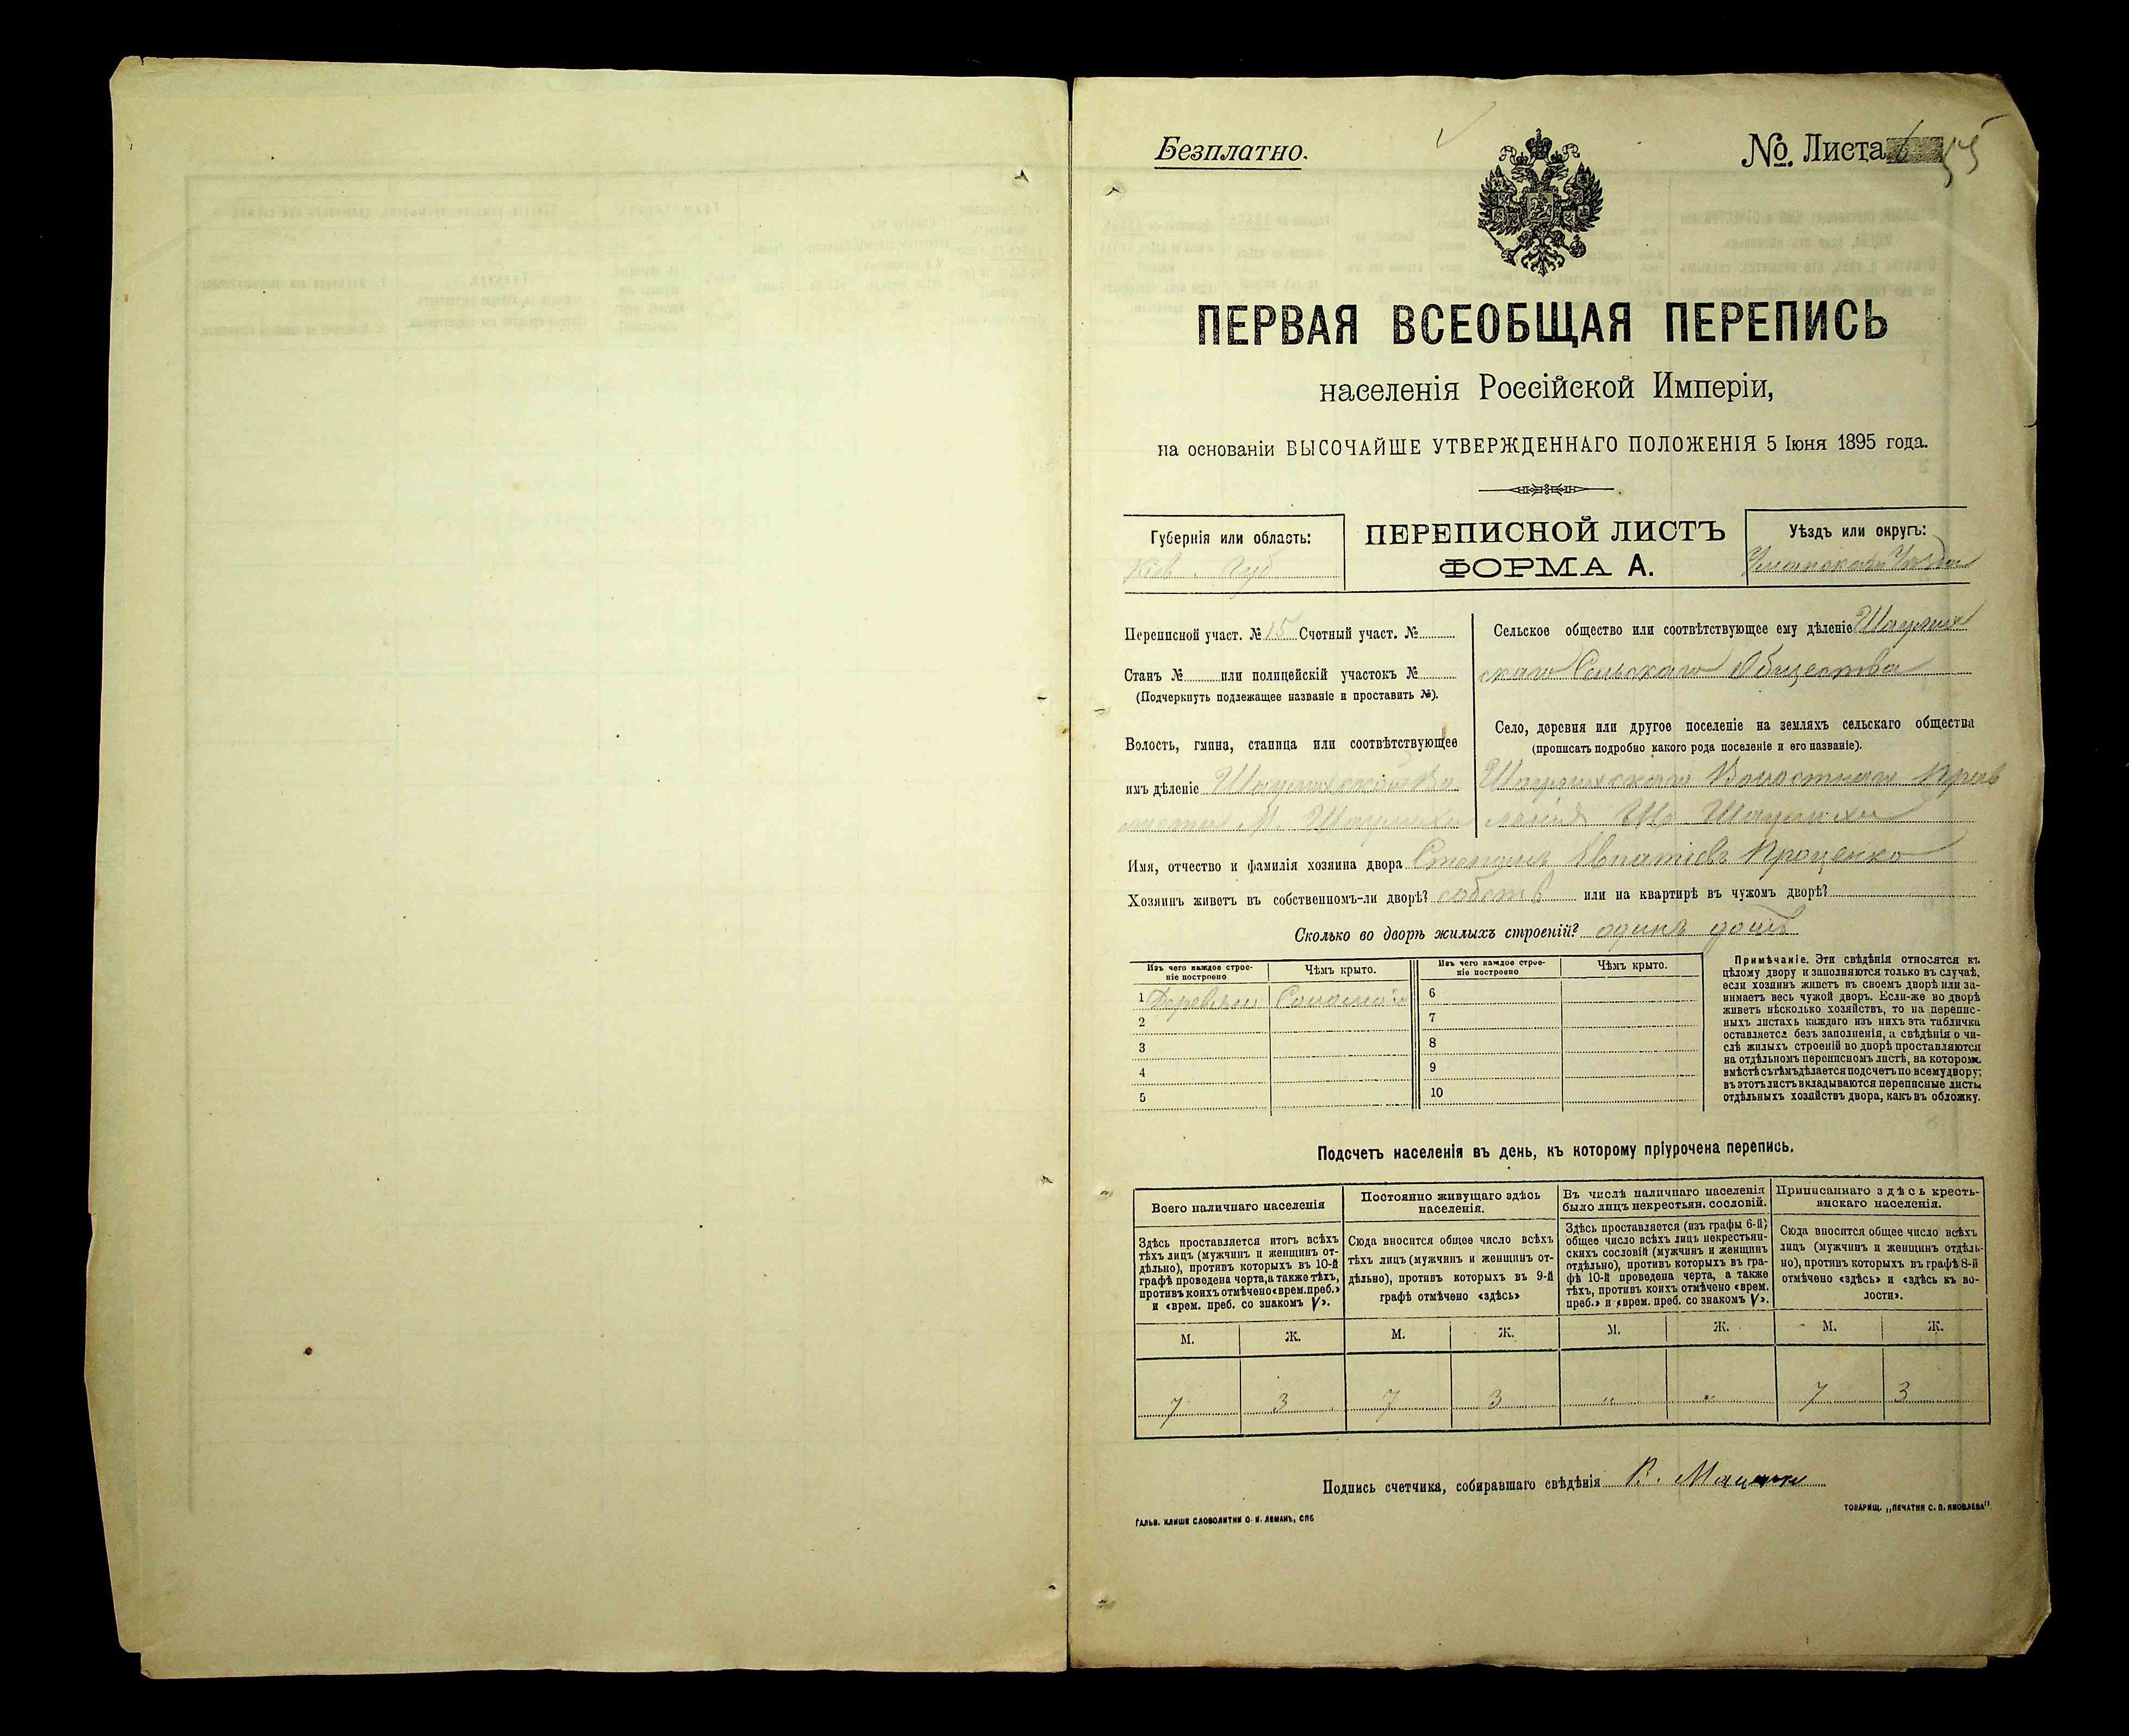 Безплатно.
№. Листа
ПЕРВАЯ ВСЕОБЩАЯ ПЕРЕПИСЬ
населенія Россійской Имперіи,
на основаніи ВЫСОЧАЙШЕ УТВЕРЖДЕННАГО ПОЛОЖЕНІЯ 5 Іюня 1895 года.
Губернія или область:
Кіев. Губ
ПЕРЕПИСНОЙ ЛИСТЪ
ФОРМА А.
Уѣздъ или округъ:
Уманскаго Уѣзда
Переписной участ. № 15 Счетный участ. №
Станъ № или полицейскій участокъ №
(Подчеркнуть подлежащее названіе и проставить №).
Волость, гмина, станица или соотвѣтствующее
имъ дѣленіе
Сельское общество или соотвѣтствующее ему дѣленіе
скаго Сельскаго Общества
Село, деревня или другое поселеніе на земляхъ сельскаго общества
(прописать подробно какого рода поселеніе и его названіе).
Имя, отчество и фамилія хозяина двора Степанъ Ипатіевъ Проценко
Хозяинъ живетъ въ собственномъ-ли дворѣ? собств или на квартирѣ въ чужомъ дворѣ?
Сколько во дворѣ жилыхъ строеній? одинъ домъ
Изъ чего каждое строе-
ніе построено
Чѣмъ крыто.
Изъ чего каждое строе-
ніе построено
Чѣмъ крыто.
1 Деревян Соломой 6
2 7
3 8
4 9
5 10
Примѣчаніе. Эти свѣдѣнія относятся къ
цѣлому двору и заполняются только въ случаѣ,
если хозяинъ живетъ въ своемъ дворѣ или за-
нимаетъ весь чужой дворъ. Если-же во дворѣ
живетъ нѣсколько хозяйствъ, то на перепис-
ныхъ листахъ каждаго изъ нихъ эта табличка
оставляется безъ заполненія, а свѣдѣнія о чи-
слѣ жилыхъ строеній во дворѣ проставляются
на отдѣльномъ переписномъ листѣ, на которомъ
вмѣстѣ съ тѣмъ дѣлается подсчетъ по всему двору;
въ этотъ листъ вкладываются переписные листы
отдѣльныхъ хозяйствъ двора, какъ въ обложку.
Подсчетъ населенія въ день, къ которому пріурочена перепись.
Всего наличнаго населенія
Здѣсь проставляется итогъ всѣхъ
тѣхъ лицъ (мужчинъ и женщинъ от-
дѣльно), противъ которыхъ въ 10-й
графѣ проведена черта, а также тѣхъ,
противъ коихъ отмѣчено «врем. преб.»
и «врем. преб. со знакомъ V».
Постоянно живущаго здѣсь
населенія.
Сюда вносится общее число всѣхъ
тѣхъ лицъ (мужчинъ и женщинъ от-
дѣльно), противъ которыхъ въ 9-й
графѣ отмѣчено «здѣсь»
Въ числѣ наличнаго населенія
было лицъ некрестьян. сословій.
Здѣсь проставляется (изъ графы 6-й)
общее число всѣхъ лицъ некрестьян-
скихъ сословій (мужчинъ и женщинъ
отдѣльно), противъ которыхъ въ гра-
фѣ 10-й проведена черта, а также
тѣхъ, противъ коихъ отмѣчено «врем.
преб.» и «врем. преб. со знакомъ V».
Приписаннаго здѣсь кресть-
янскаго населенія.
Сюда вносится общее число всѣхъ
лицъ (мужчинъ и женщинъ отдѣль-
но), противъ которыхъ въ графѣ 8-й
отмѣчено «здѣсь» и «здѣсь къ во-
лости».
М. Ж. М. Ж. М. Ж. М. Ж.
7 3 7 3 " " 7 3
Подпись счетчика, собиравшаго свѣдѣнія
ГАЛЬВ. КЛИШЕ СЛОВОЛИТНИ О. И. ЛЕМАНЪ, СПБ
ТОВАРИЩ. „ПЕЧАТНЯ С. П. ЯКОВЛЕВА"